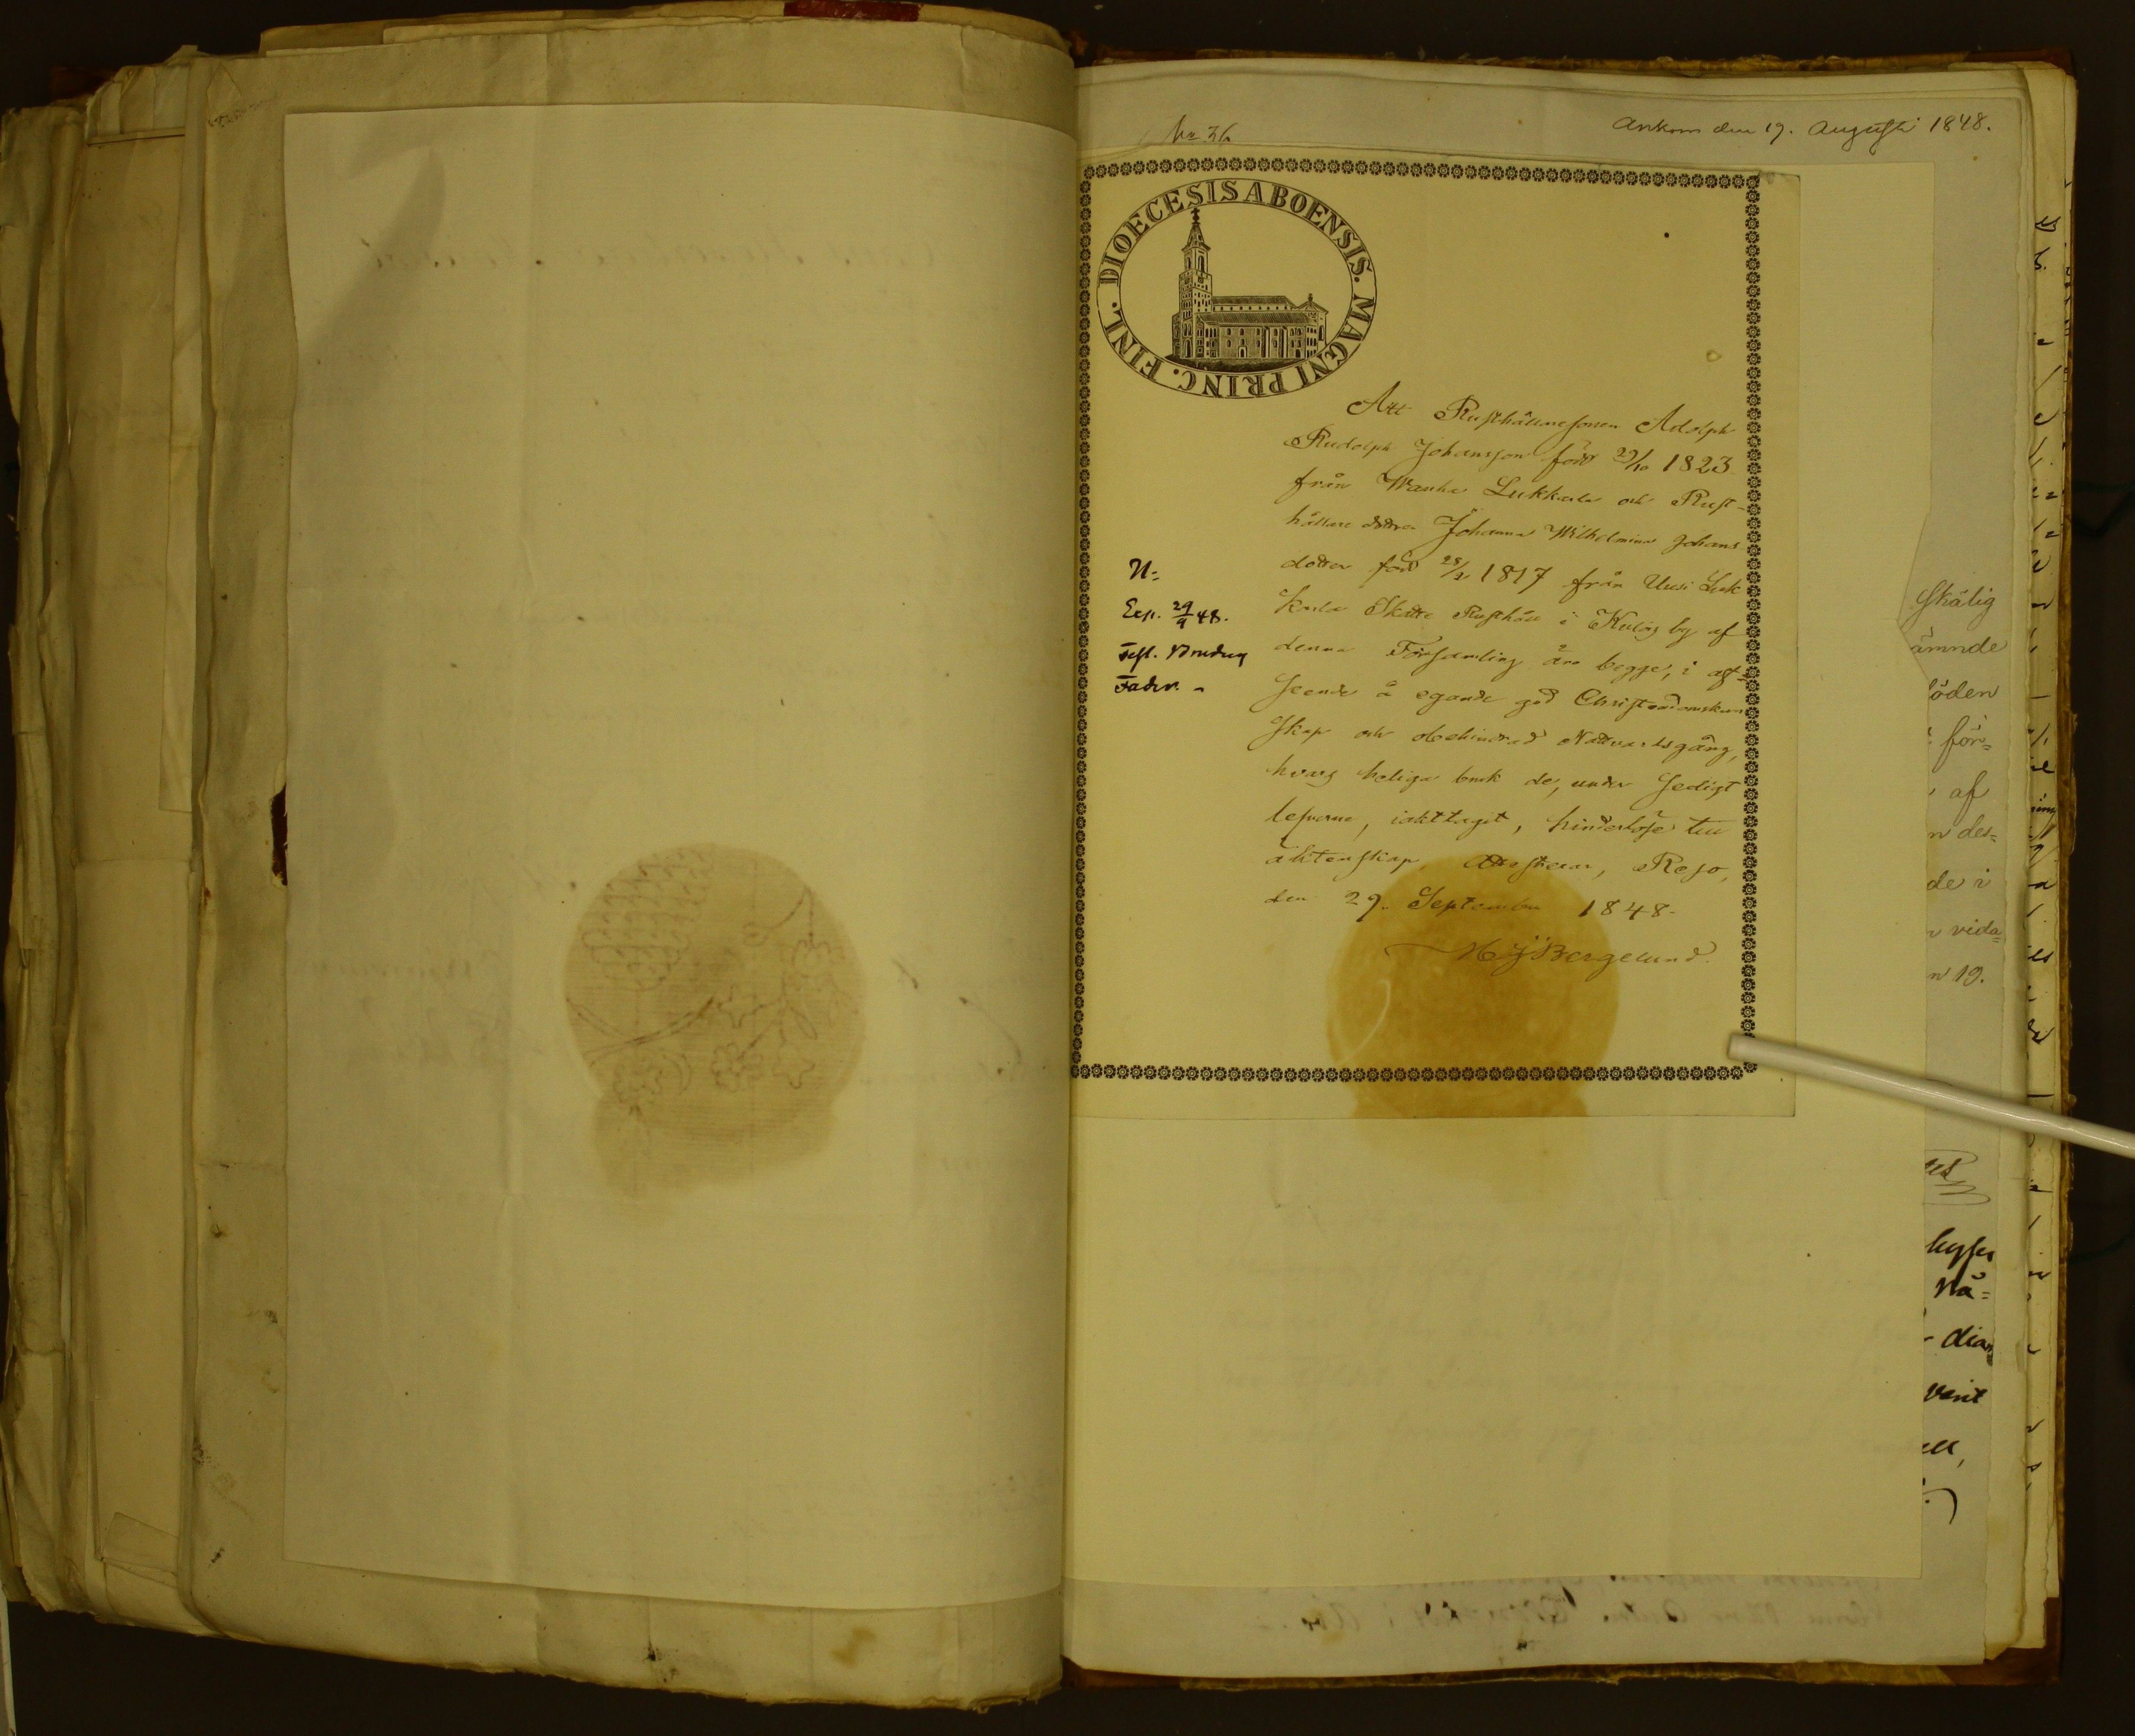 No 36
Ankom den 19. Augusti 1848.
DIOECESIS ABOENSIS. MAGNI PRINC. FINL.
Att Rusthållaresonen Adolph
Rudolph Johansson född 29/10 1823
från Wanha Lukkala och Rust-
hållare dottren Johanna Wilhelmina Johans
dotter född 1817 från Uusi Luk
kala Skatte Rusthåll i Kuloj by af
denna Församling äro begge, i af-
seende å egande god Christendomskun
skap och obehindrad Nattvardsgång,
hvars heliga bruk de, under sedigt
lefverne, iakttagit, hinderlöse till
äktenskap, attesterar, Reso,
den 29. September 1848.
Bergelund.
N:
Exp. 29/9 48.
Test. Brudens
Fader.
skälig
ämnde
öden
för=
af
n des=
de i
vida=
n 19.
Nå=
dia